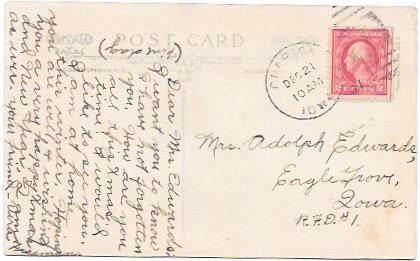 POST CARD
DEC 21
10 AM
IOWA
U.S. POSTAGE
2 CENTS 2
(Tuesday)
Dear Mrs Edwards:
I want you to know
I have not forgotten
you. How are you
all this Xmas
time. I would
like to see you.
I am at home
this winter. Hoping
you are well & wishing
you a very happy Xmas
and New Year, I
as ever your friend
Mrs. Adolph Edwards,
Eagle Grove,
Iowa.
R.F.D. #1.